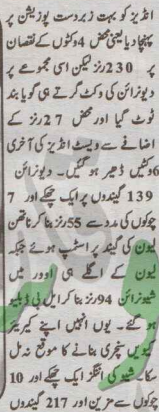 انڈیز کو بہت زبردست پوزیشن پر
پہنچا دیا یعنی محض 4 وکٹوں کے نقصان
پر 230 رنز لیکن اسی مجموعے پر
دیونرائن کی وکٹ گرتے ہی گویا بند
ٹوٹ گیا اور محض 27 رنز کے
اضافے سے ویسٹ انڈیز کی آخری
6 وکٹیں ڈھیر ہو گئیں۔ دیونرائن
139 گیندوں پر ایک چھکے اور 7
چوکوں کی مدد سے 55 رنز بنا کر ناتھن
لیون کی گیند پر اسٹمپ ہوئے جبکہ
لیون کے اگلے ہی اوور میں
شیونرائن 94 رنز بنا کر ایل بی ڈبلیو
ہو گئے۔ یوں انہیں اپنے کیریئر
کی سنچری بنانے کا موقع نہ مل
سکا۔ شیو کی اننگز ایک چھکے اور 10
چوکوں سے مزین اور 217 گیندوں